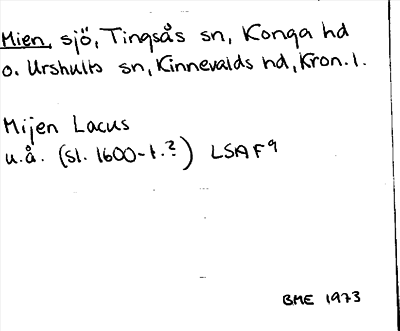 Mien, sjö, Tingsås sn, Konga hd
o. Urshults sn, Kinnevalds hd, Kron. l.
Mijen Lacus
u.å. (sl. 1600-t.?) LSAF9
BME 1973